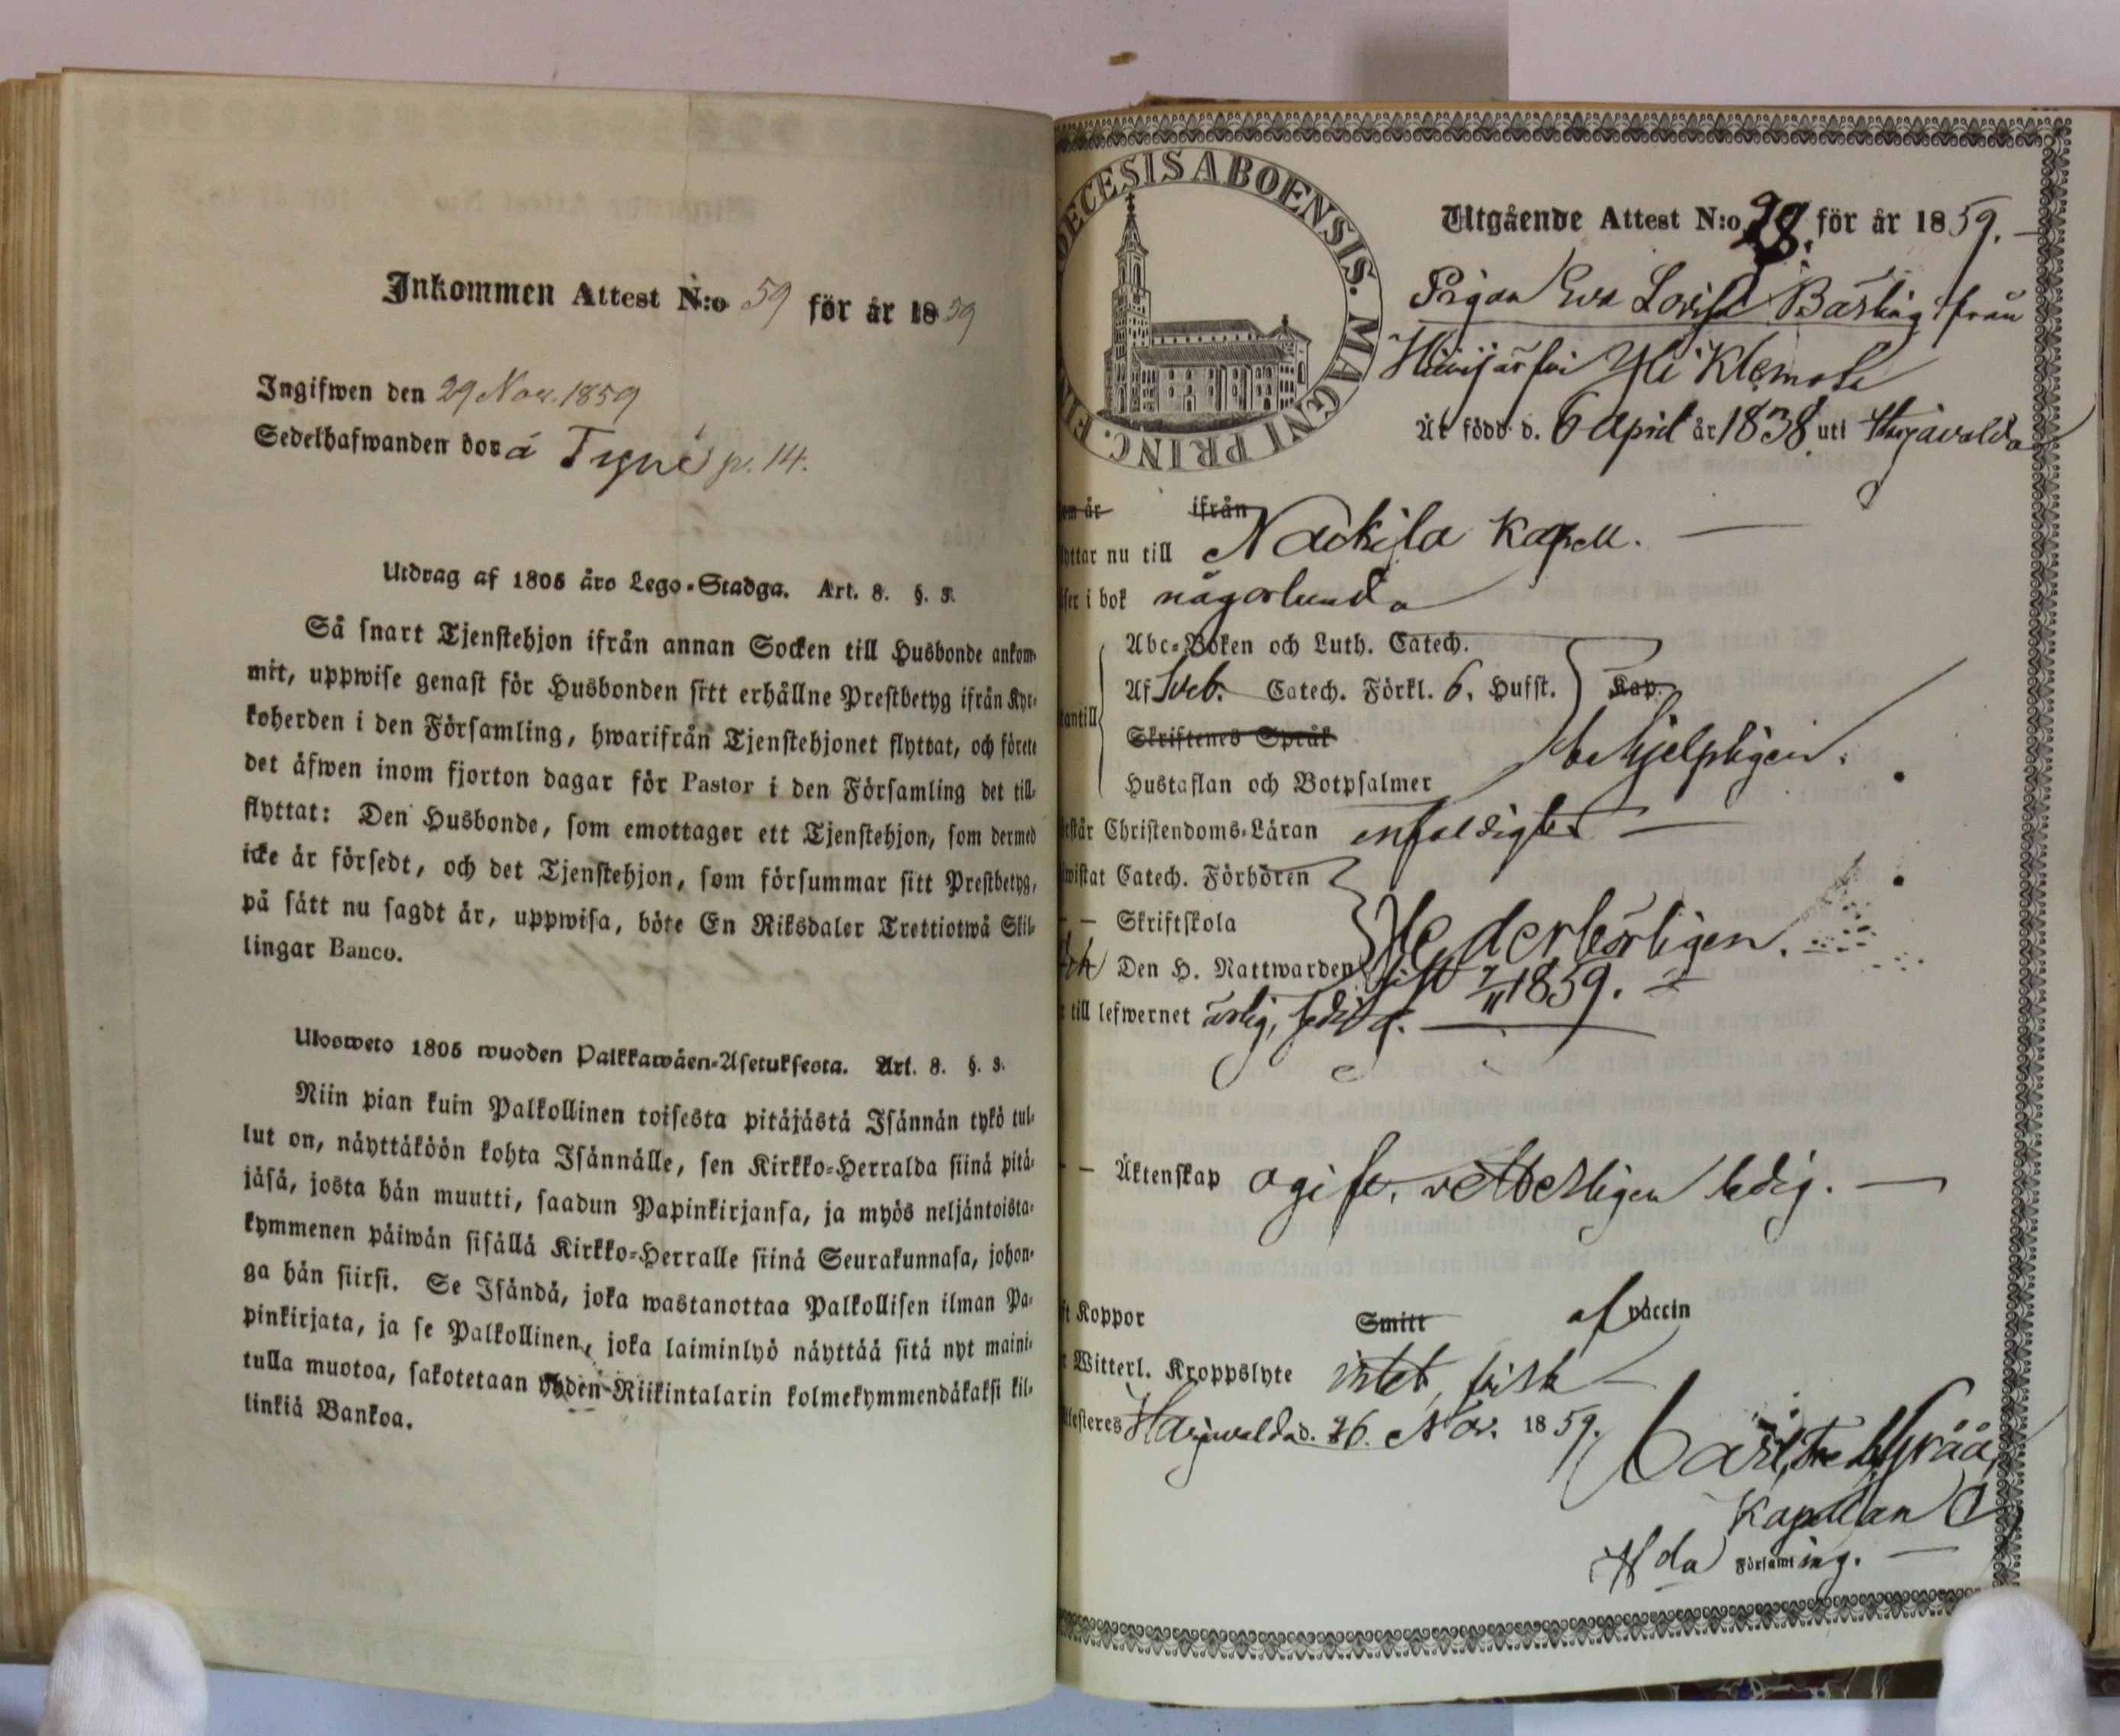 Inkommen Attest N:o 59 för år 1859
Ingifwen den 29 Nov. 1859
Sedelhafwanden bor á Tyni p. 14.
Utdrag af 1805 års Lego-Stadga. Art. 8. §. 3.
Så snart Tjenstehjon ifrån annan Socken till Husbonde ankom-
mit, uppwise genast för Husbonden sitt erhållne Prestbetyg ifrån Kyr-
koherden i den Församling, hwarifrån Tjenstehjonet flyttat, och förete
det äfwen inom fjorton dagar för Pastor i den Församling det till-
flyttat: Den Husbonde, som emottager ett Tjenstehjon, som dermed
icke är försedt, och det Tjenstehjon, som försummar sitt Prestbetyg,
på sätt nu sagdt är, uppwisa, böte En Riksdaler Trettiotwå Skil-
lingar Banco.
Ulosweto 1805 wuoden Palkkawäen-Asetuksesta. Art. 8. §. 3.
Niin pian kuin Palkollinen toisesta pitäjästä Isännän tykö tul-
lut on, näyttäköön kohta Isännälle, sen Kirkko-Herralda siinä pitä-
jäsä, josta hän muutti, saadun Papinkirjansa, ja myös neljäntoista-
kymmenen päiwän sisällä Kirkko-Herralle siinä Seurakunnasa, johon-
ga hän siirsi. Se Isändä, joka wastanottaa Palkollisen ilman Pa-
pinkirjata, ja se Palkollinen, joka laiminlyö näyttää sitä nyt maini-
tulla muotoa, sakotetaan yhden Riikintalarin kolmekymmendäkaksi kil-
linkiä Bankoa.
DIOECESIS ABOENSIS. MAGNI PRINC. FIN
Utgående Attest N:o 28. för år 1859.
Pigan Eva Lovisa Bärling från
Hiirijärfvi Yli Klemola
Är född d. 6 April år 1838 uti Harjavalda
om är ifrån
lyttar nu till Nackila Kapell.
äser i bok någorlunda
Abc-Boken och Luth. Catech.
Af Sveb. Catech. Förkl. 6. Husst. Kap.
tantill
Skriftenes Språk
behjelpligen.
Hustaflan och Botpsalmer
rstår Christendoms-Läran enfaldigt
wistat Catech. Förhören
— Skriftskola
Hederbörligen.
och Den H. Nattwarden sist 7/11 1859.
r till lefwernet ärlig,
— Äktenskap ogift, vetterligen ledig.
ft Koppor Smitt af vaccin
r Witterl. Kroppslyte intet, frisk
ttesteres Harjavalda d. 26. Nov. 1859.
Carl Fred. Gråå,
Kapellan
Hda Församling.